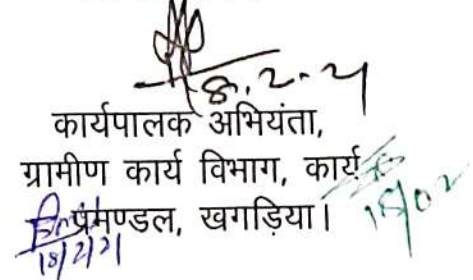 18.2.21
कार्यपालक अभियंता,
ग्रामीण कार्य विभाग, कार्य
प्रमण्डल, खगड़िया।
18/02
18/2/21